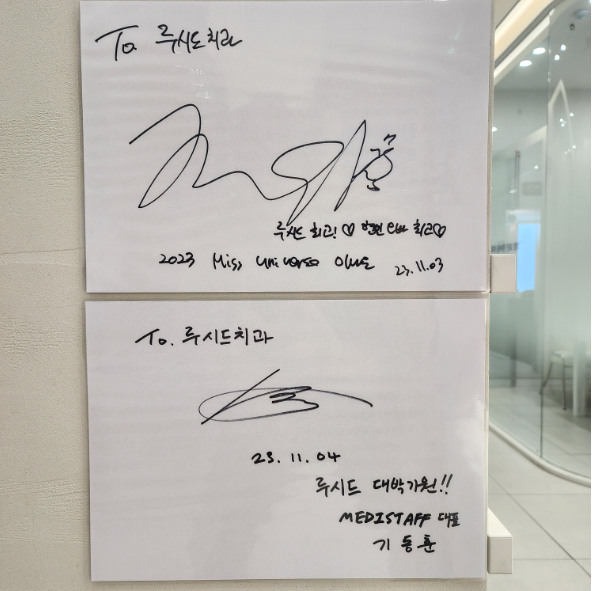 To. 루시드치과
루시드 최고! ♡ 최고♡
2023 Miss Universe
23.11.03
To. 루시드치과
23.11.04
루시드 대박기원!!
MEDISTAFF 대표
기동훈